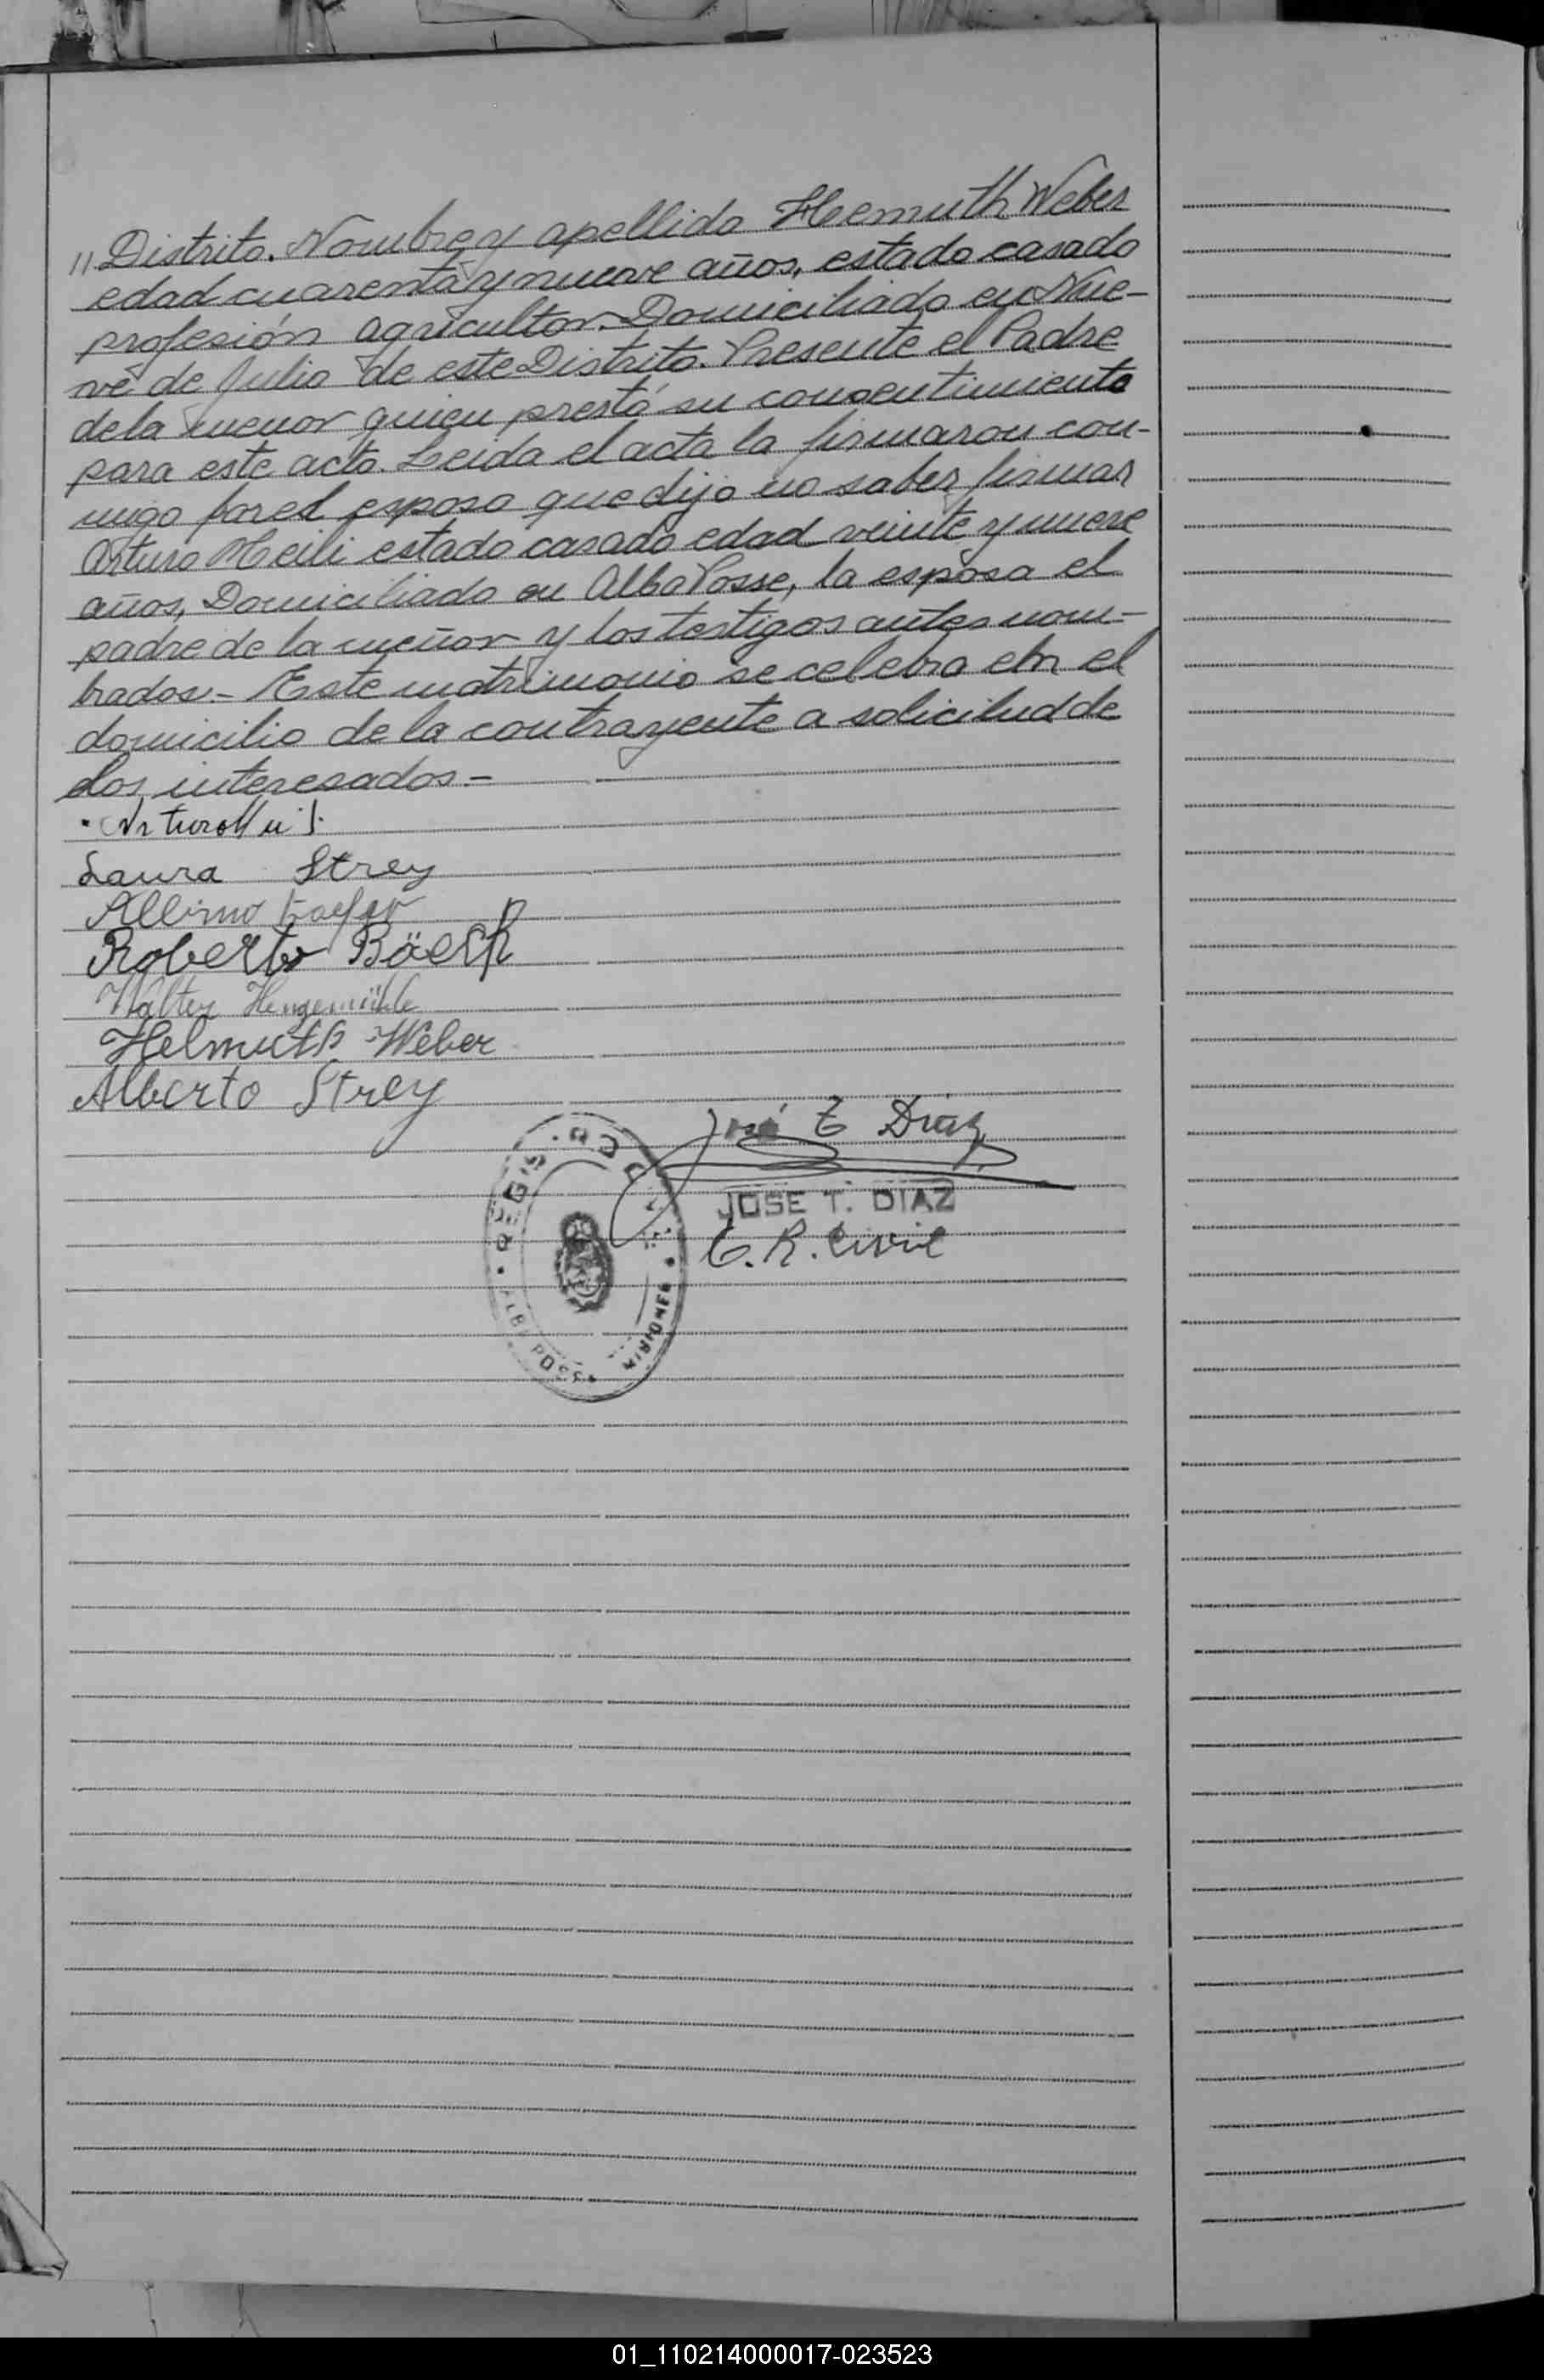 " Distrito. Nombre y apellido Helmuth Weber
edad cuarenta y nueve años, estado casado
profesión agricultor. Domiciliado en Nue-
ve de Julio de este Distrito. Presente el Padre
de la menor quien prestó su consentimiento
para este acto. Leida el acta la firmaron con-
migo por el esposo que dijo no saber firmar
Arturo Meili estado casado edad veinte y nueve
años, Domiciliado en Alba Posse, la esposa el
padre de la menor y los testigos antes nom-
brados.- Este matrimonio se celebra en el
domicilio de la contrayente a solicitud de
los interesados.-
Arturo Meili
Laura Strey
Albino
Roberto Bäesh
Walter Hengemühle
Helmuth Weber
Alberto Strey
José T Diaz
JOSE T. DIAZ
E. R. Civil
REGISTRO CIVIL
ALBA POSSE
MISIONES
01_110214000017-023523